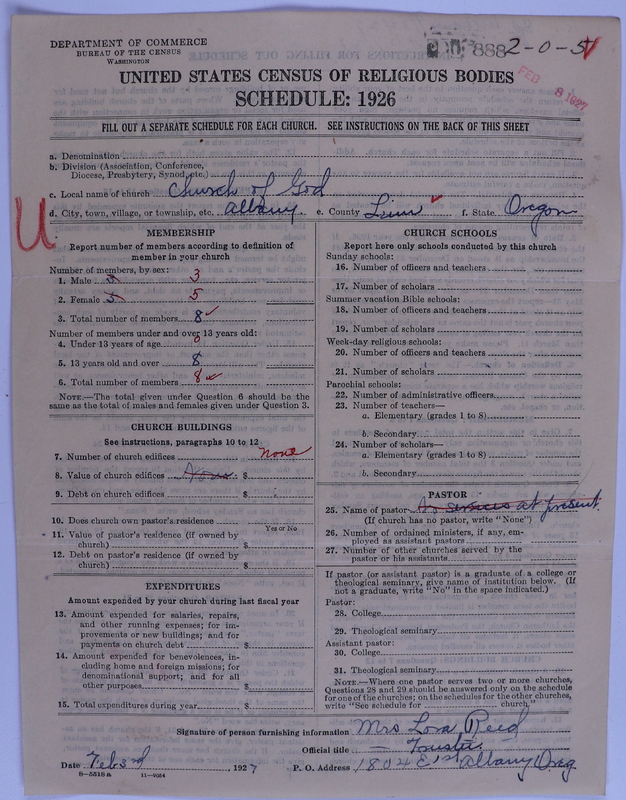 DEPARTMENT OF COMMERCE
BUREAU OF THE CENSUS
WASHINGTON
888 2-0-5
FEB 8 1927
UNITED STATES CENSUS OF RELIGIOUS BODIES
SCHEDULE: 1926
FILL OUT A SEPARATE SCHEDULE FOR EACH CHURCH. SEE INSTRUCTIONS ON THE BACK OF THIS SHEET
a. Denomination
b. Division (Association, Conference,
Diocese, Presbytery, Synod, etc.)
c. Local name of church Church of God
d. City, town, village, or township, etc. Albany e. County Linn f. State Oregon
U
MEMBERSHIP
Report number of members according to definition of
member in your church
Number of members, by sex:
1. Male 5 3
2. Female 5 5
3. Total number of members 8
Number of members under and over 13 years old:
4. Under 13 years of age 0
5. 13 years old and over 8
6. Total number of members 8
NOTE.—The total given under Question 6 should be
same as the total of males and females given under Question 3.
CHURCH BUILDINGS
See instructions, paragraphs 10 to 12
7. Number of church edifices none
8. Value of church edifices None $
9. Debt on church edifices $
10. Does church own pastor's residence
Yes or No
11. Value of pastor's residence (if owned by
church) $
12. Debt on pastor's residence (if owned by
church) $
EXPENDITURES
Amount expended by your church during last fiscal year
13. Amount expended for salaries, repairs,
and other running expenses; for im-
provements or new buildings; and for
payments on church debt $
14. Amount expended for benevolences, in-
cluding home and foreign missions; for
denominational support; and for all
other purposes $
15. Total expenditures during year $
CHURCH SCHOOLS
Report here only schools conducted by this church
Sunday schools:
16. Number of officers and teachers
17. Number of scholars
Summer vacation Bible schools:
18. Number of officers and teachers
19. Number of scholars
Week-day religious schools:
20. Number of officers and teachers
21. Number of scholars
Parochial schools:
22. Number of administrative officers
23. Number of teachers—
a. Elementary (grades 1 to 8)
b. Secondary
24. Number of scholars—
a. Elementary (grades 1 to 8)
b. Secondary
PASTOR
25. Name of pastor No services at present
(If church has no pastor, write "None")
26. Number of ordained ministers, if any, em-
ployed as assistant pastors
27. Number of other churches served by the
pastor or his assistants
If pastor (or assistant pastor) is a graduate of a college or
theological seminary, give name of institution below. (If
not a graduate, write "No" in the space indicated.)
Pastor:
28. College
29. Theological seminary
Assistant pastor:
30. College
31. Theological seminary
NOTE.—Where one pastor serves two or more churches,
Questions 28 and 29 should be answered only on the schedule
for one of the churches; on the schedules for the other churches,
write "See schedule for church."
Signature of person furnishing information Mrs Lora Reed
Official title Trustee
Date Feb 3rd, 1927 P. O. Address 1804 E 1st Albany Oreg
8-5518 a 11-9564